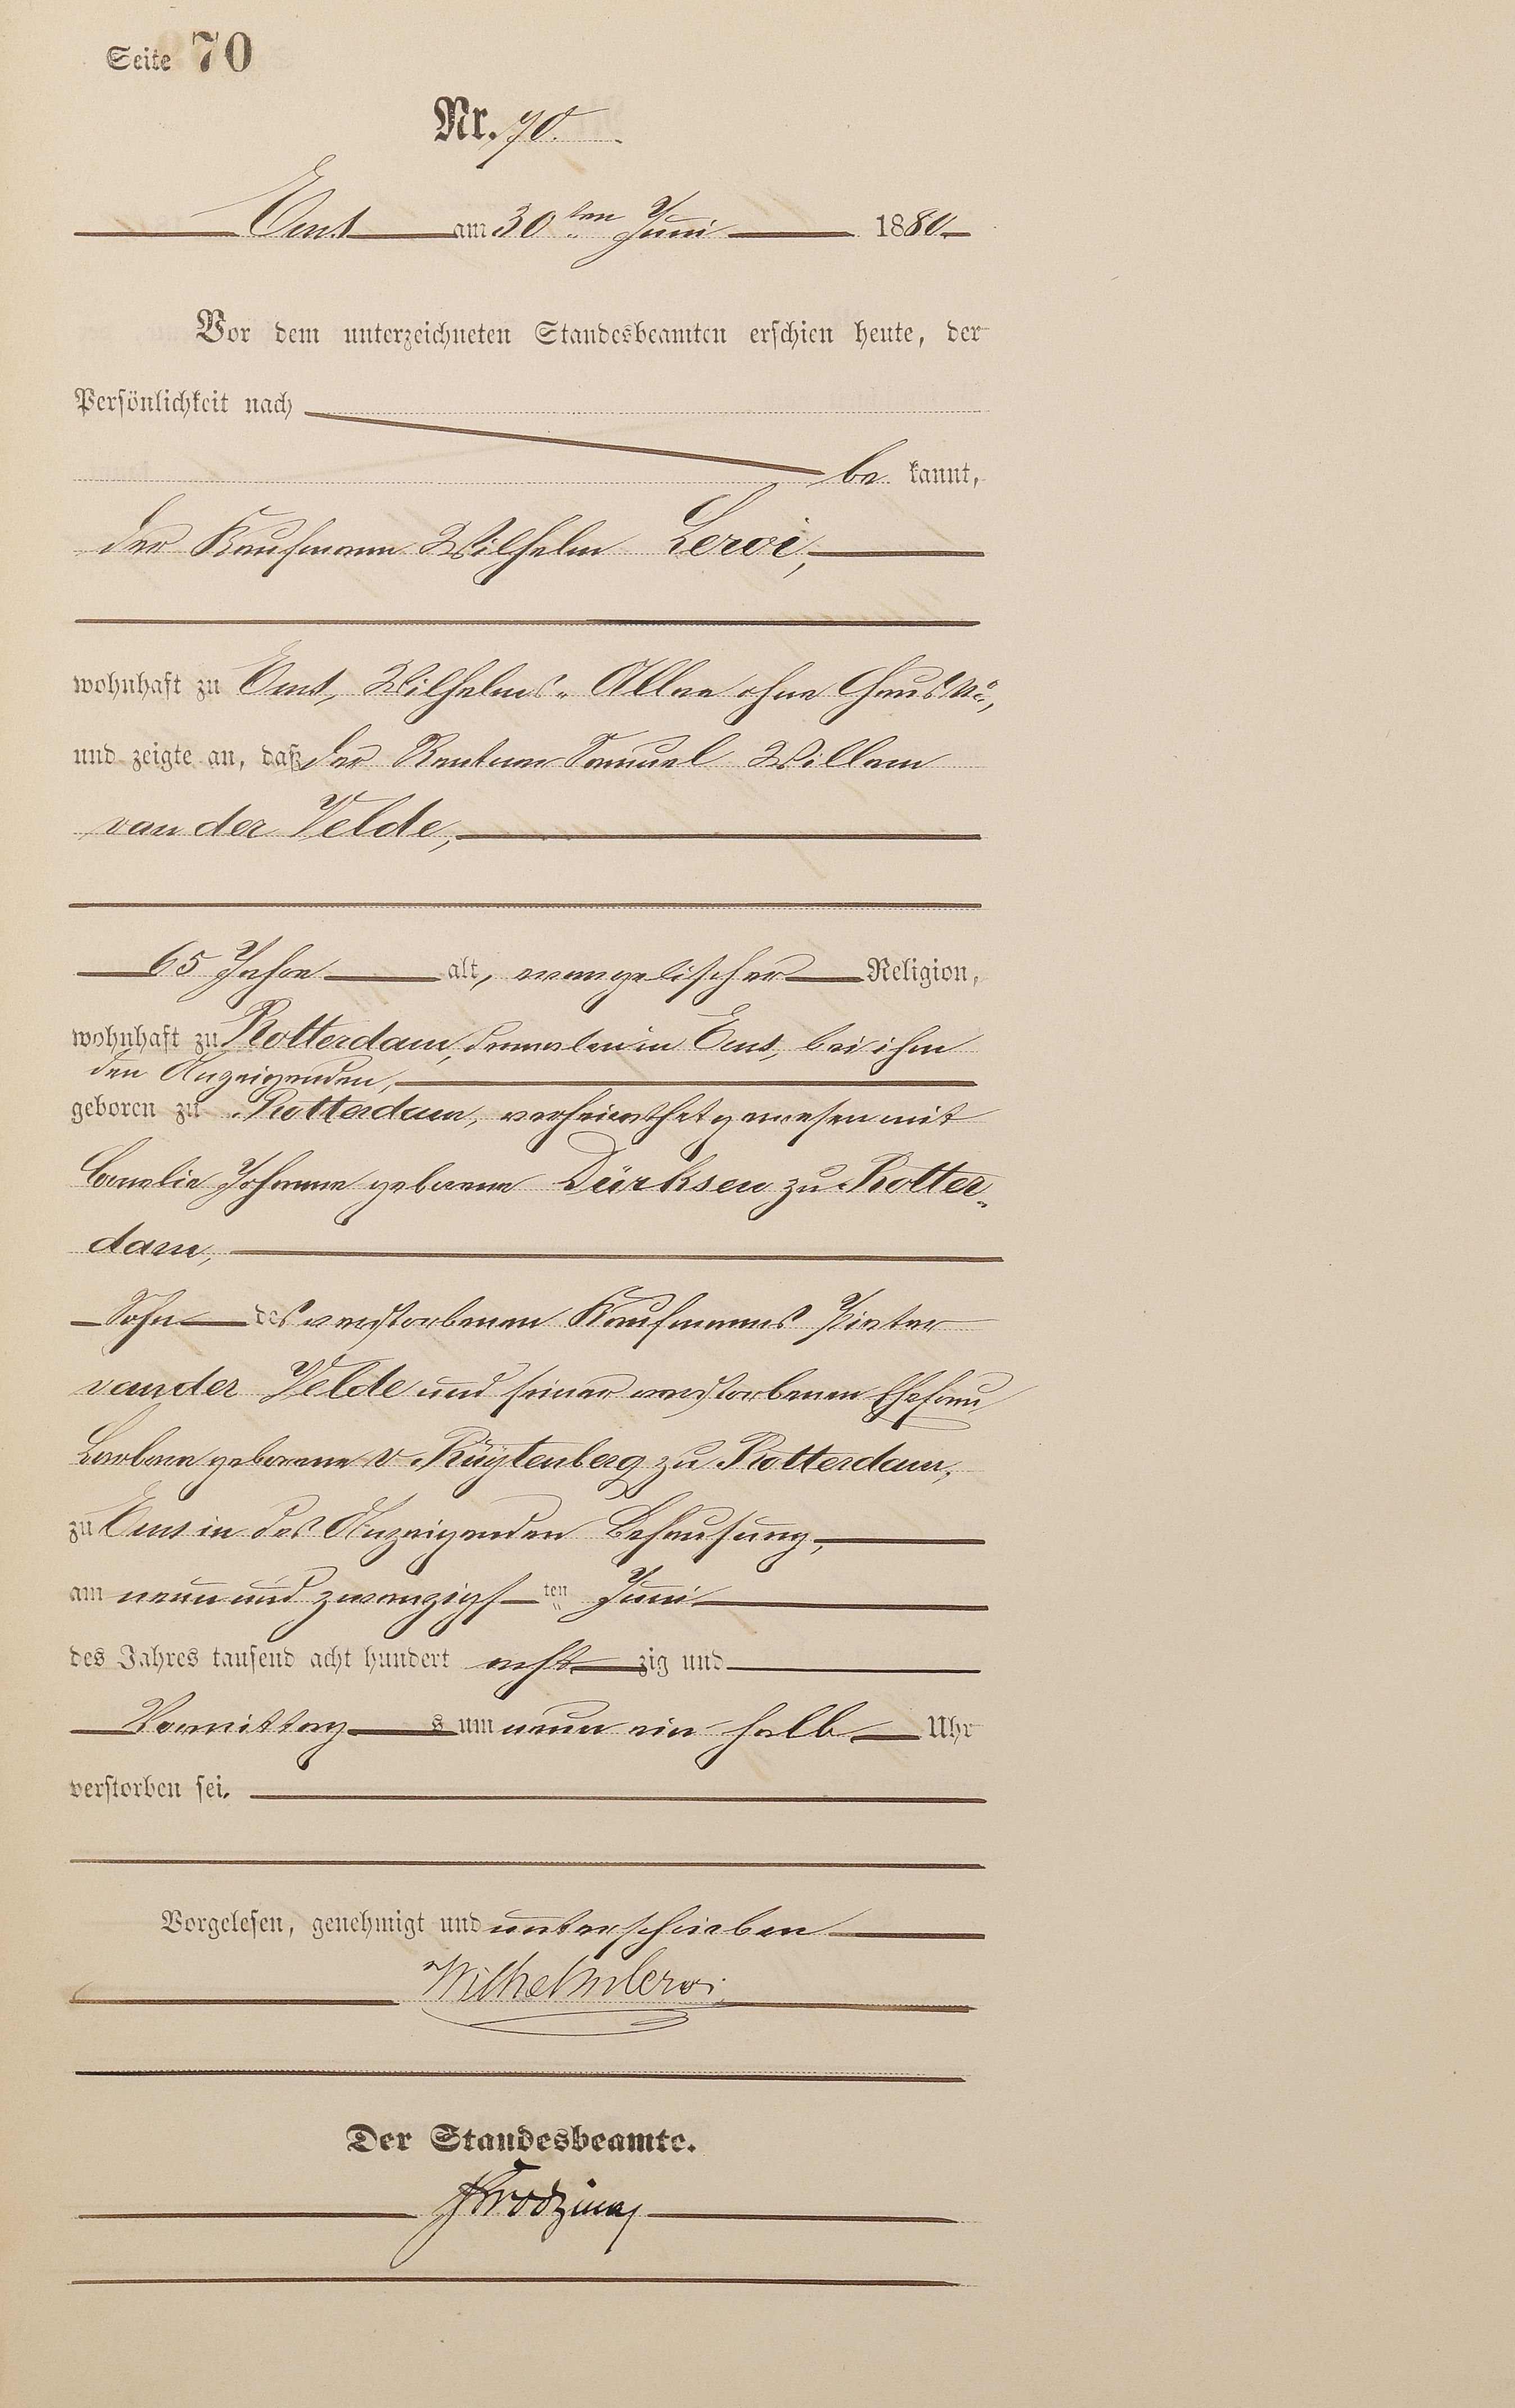 Seite 70
Nr. 70.
Ems am 30ten Juni 1880
Vor dem unterzeichneten Standesbeamten erschien heute, der
Persönlichkeit nach
be kannt,
der Kaufmann Wilhelm Leroi,
wohnhaft zu Ems, Wilhelms-Allee ohne Haus No,
und zeigte an, daß der Rentner Samuel Willem
van der Velde,
65 Jahre alt, evangelischer Religion,
wohnhaft zu Rotterdam, dermalen in Ems, bei ihm
den Anzeigenden,
geboren zu Rotterdam, verheirathet gewesen mit
Cornelie Johanna geborene Dürksen zu Rotter-
dam,
Sohn des verstorbenen Kaufmanns Pieter
van der Velde und seiner verstorbenen Ehefrau
Barbara geborene v. Rüytenberg zu Rotterdam,
zu Ems in des Anzeigenden Behausung,
am neunundzwanzigsten Juni
des Jahres tausend acht hundert acht zig und
Vormittag s um neun ein halb Uhr
verstorben sei.
Vorgelesen, genehmigt und unterschrieben
Wilhelm Leroi
Der Standesbeamte.